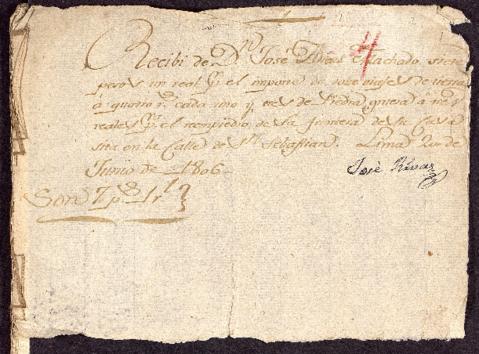 4
Recibi de Dn José Dias Machado siete
pesos un real pr el importe de doze viajes de tierra
a quatro rs cada uno y tres de Piedra gruesa a tres
reales pa el rempiedro de la frontera de su Casa
sita en la Calle de Sn Sebastian. Lima de
Junio de 1806
José Rivas
Son 7 ps 1 rl